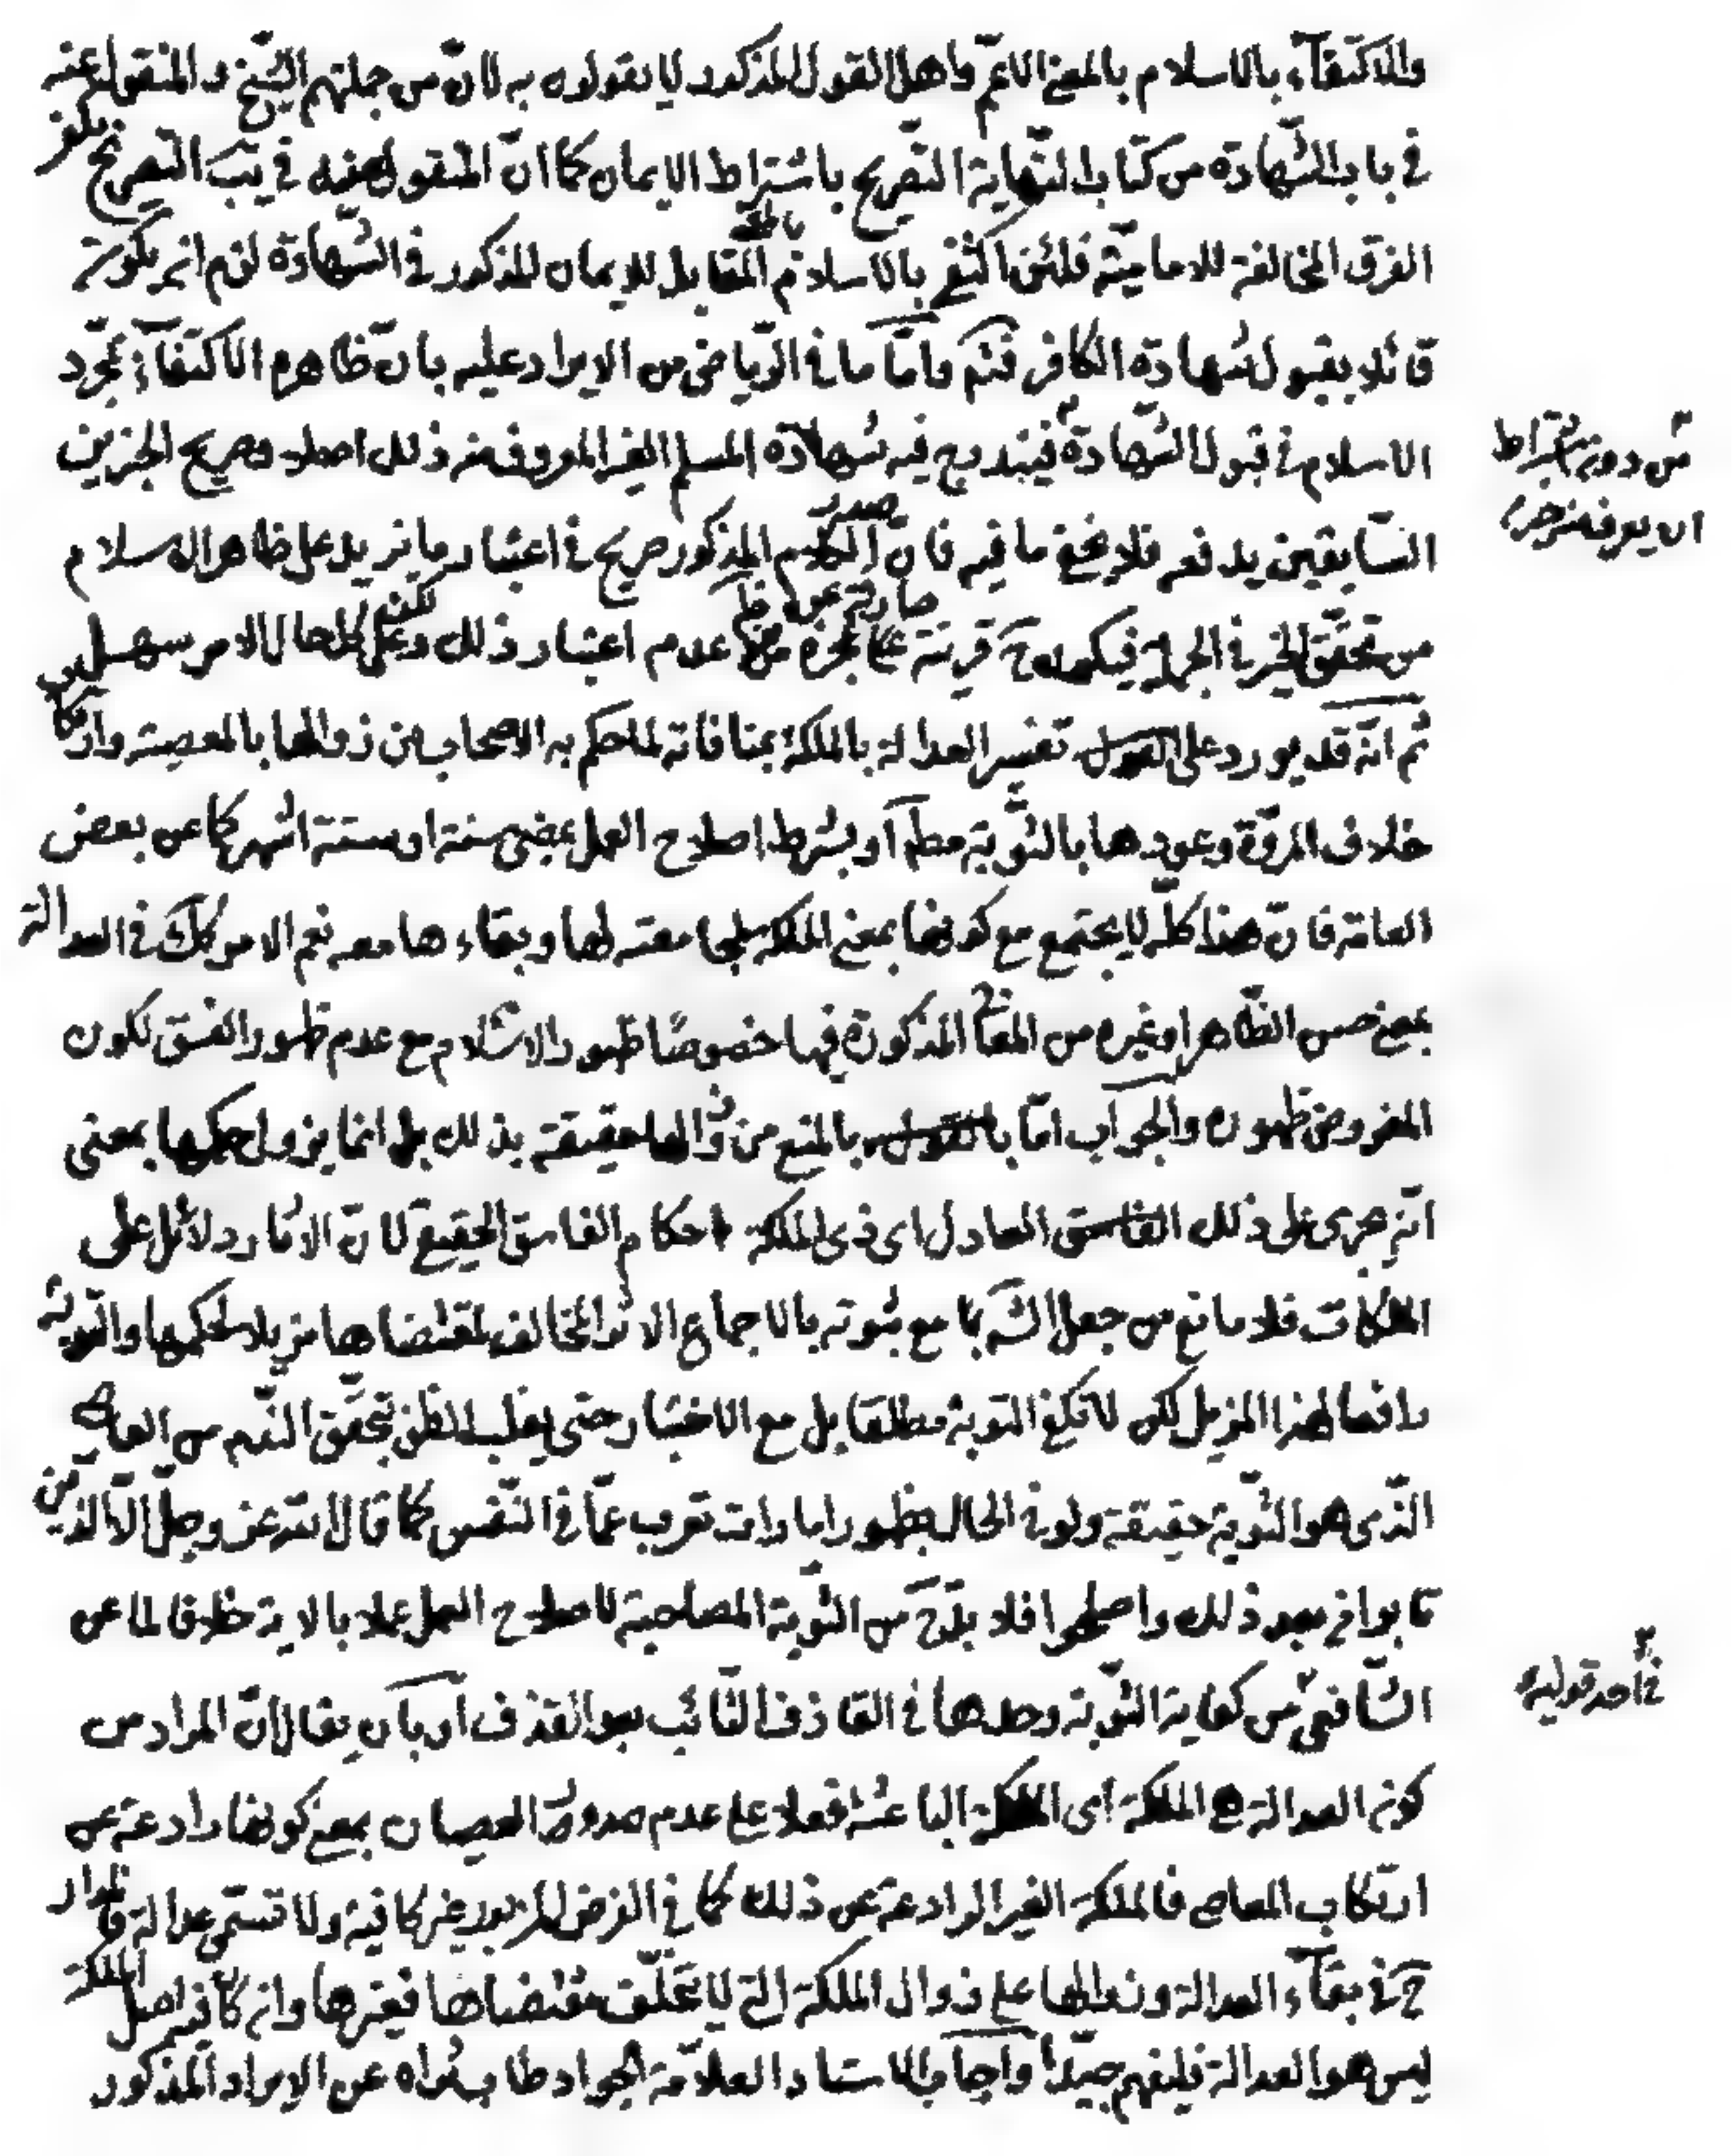 والاكتفآء بالاسلام بالمعنى الاعمّ واهل القول المذكور لا يقولون به لانّ من جملتهم الشّيخ ره والمنقول عنه
في باب الشّهادة من كتاب النّهاية التّصريح باشتراط الايمان كما انّ المنقول عنه في يب التّصريح بكفر
الفرق المخالفة للاماميّة فلئن اكتفى بالاسلام بالمعنى المقابل للايمان المذكور في الشّهادة لزم انّه يكون
قائلا بقبول شهادة الكافر فتمّ وامّا ما في الرّياض من الايراد عليه بانّ ظاهره الاكتفآء بمجرّد
الاسلام في قبول الشّهادة من دون اشتراط ان يعرف منه خير
فيندرج فيه شهادة المسلم الغير المعروف منه ذلك اصلا وصريح الخبرين
السّابقين يدفعه فلا يخفى ما فيه فانّ صدر الكلام المذكور صريح في اعتبار ما يزيد على ظاهر الاسلام
من تحقّق الخير في الجملة فيكون ح قرينة صارفة عن ظا عجزه عدم اعتبار ذلك لكن على كلّ حال الامر سهل
ثم انّه قد يورد على تفسير العدالة بالملكة بمنافاته لما حكم به الاصحاب من زوالها بالمعصية وارتكاب
خلاف المروّة وعودها بالتّوبة مطلقا او بشرط اصلاح العمل بمضى سنة او ستة اشهر كما عن بعض
العامّة فانّ هذا كلّه لا يجتمع مع كونها بمعنى الملكة لمجامعته لها وبقاءها معه نعم الامر كك في العدالة
بمعنى حسن الظّاهر او غيره من المعانى المذكورة فيها خصوصًا ظهور الاسلام مع عدم ظهور الفسق لكون
المفروض ظهوره والجواب امّا بالمنع من زوالها حقيقة بذلك بل انما يزول حكمها بمعنى
انّه يجرى على ذلك العادل اى ذى الملكة احكام الفاسق الحقيقى لانّ الاثار دلائل على
الملكات فلا مانع من جعل الشّرع مع ثبوته بالاجماع الاثر المخالف لمقتضاها مزيلا لحكمها والتّوبة
رافعا لهذا المزيل لكن لا تكفى التوبة مطلقا بل مع الاختبار حتى يغلب الظنّ بتحقّق النّدم من العاصى
الّذى هو التّوبة حقيقة ولو في الحال بظهور امارات تعرب عمّا في النّفس كما قال الله عز وجلّ الّا الّذين
تابوا من بعد ذلك واصلحوا فلا بدّ ح من التّوبة المصاحبة لاصلاح العمل عملا بالاية خلافا لما عن
الشّافعى في احد قوليه من كفاية التّوبة وحدها في القاذف التّائب بعد القذف او بان يقال انّ المراد من
كون العدالة هى الملكة اى الملكة الباعثة فعلا على عدم صدور العصيان بمعنى كونها رادعة عن
ارتكاب المعاصى فالملكة الغير الرادعة عن ذلك كما في الفرض المزبور غير كافية ولا تسمّى عدالة فالمدار
ح في بقآء العدالة وزوالها على زوال الملكة التى لا يتخلّف مقتضاها فيغيرها وان كان فيه اصل الملكة
ليس هو العدالة فليفهم جيّدا واجاب الاستاد العلّامة الجواد طاب ثراه عن الايراد المذكور